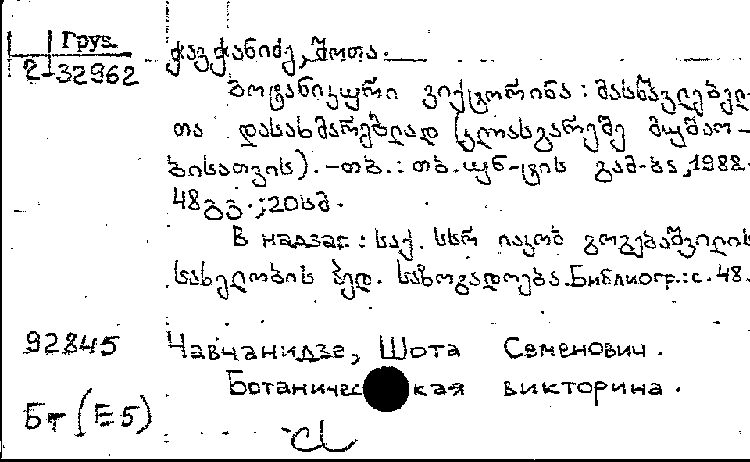 Груз.
2-32962
ჭავჭანიძე, შოთა.
ბოტანიკური ვიქტორინა: მასწავლებელ-
თა დასახმარებლად (კლასგარეშე მუშაო-
ბისათვის).-თბ.: თბ.უნ-ტის გამ-ბა, 1988.
48გვ.; 20სმ.
В надзаг.: საქ. სსრ იაკობ გოგებაშვილის
სახელობის პედ. საზოგადოება. Библиогр.: с. 48.
92845 Чавчанидзе, Шота Семенович.
Ботаническая викторина.
Бт (Е5)